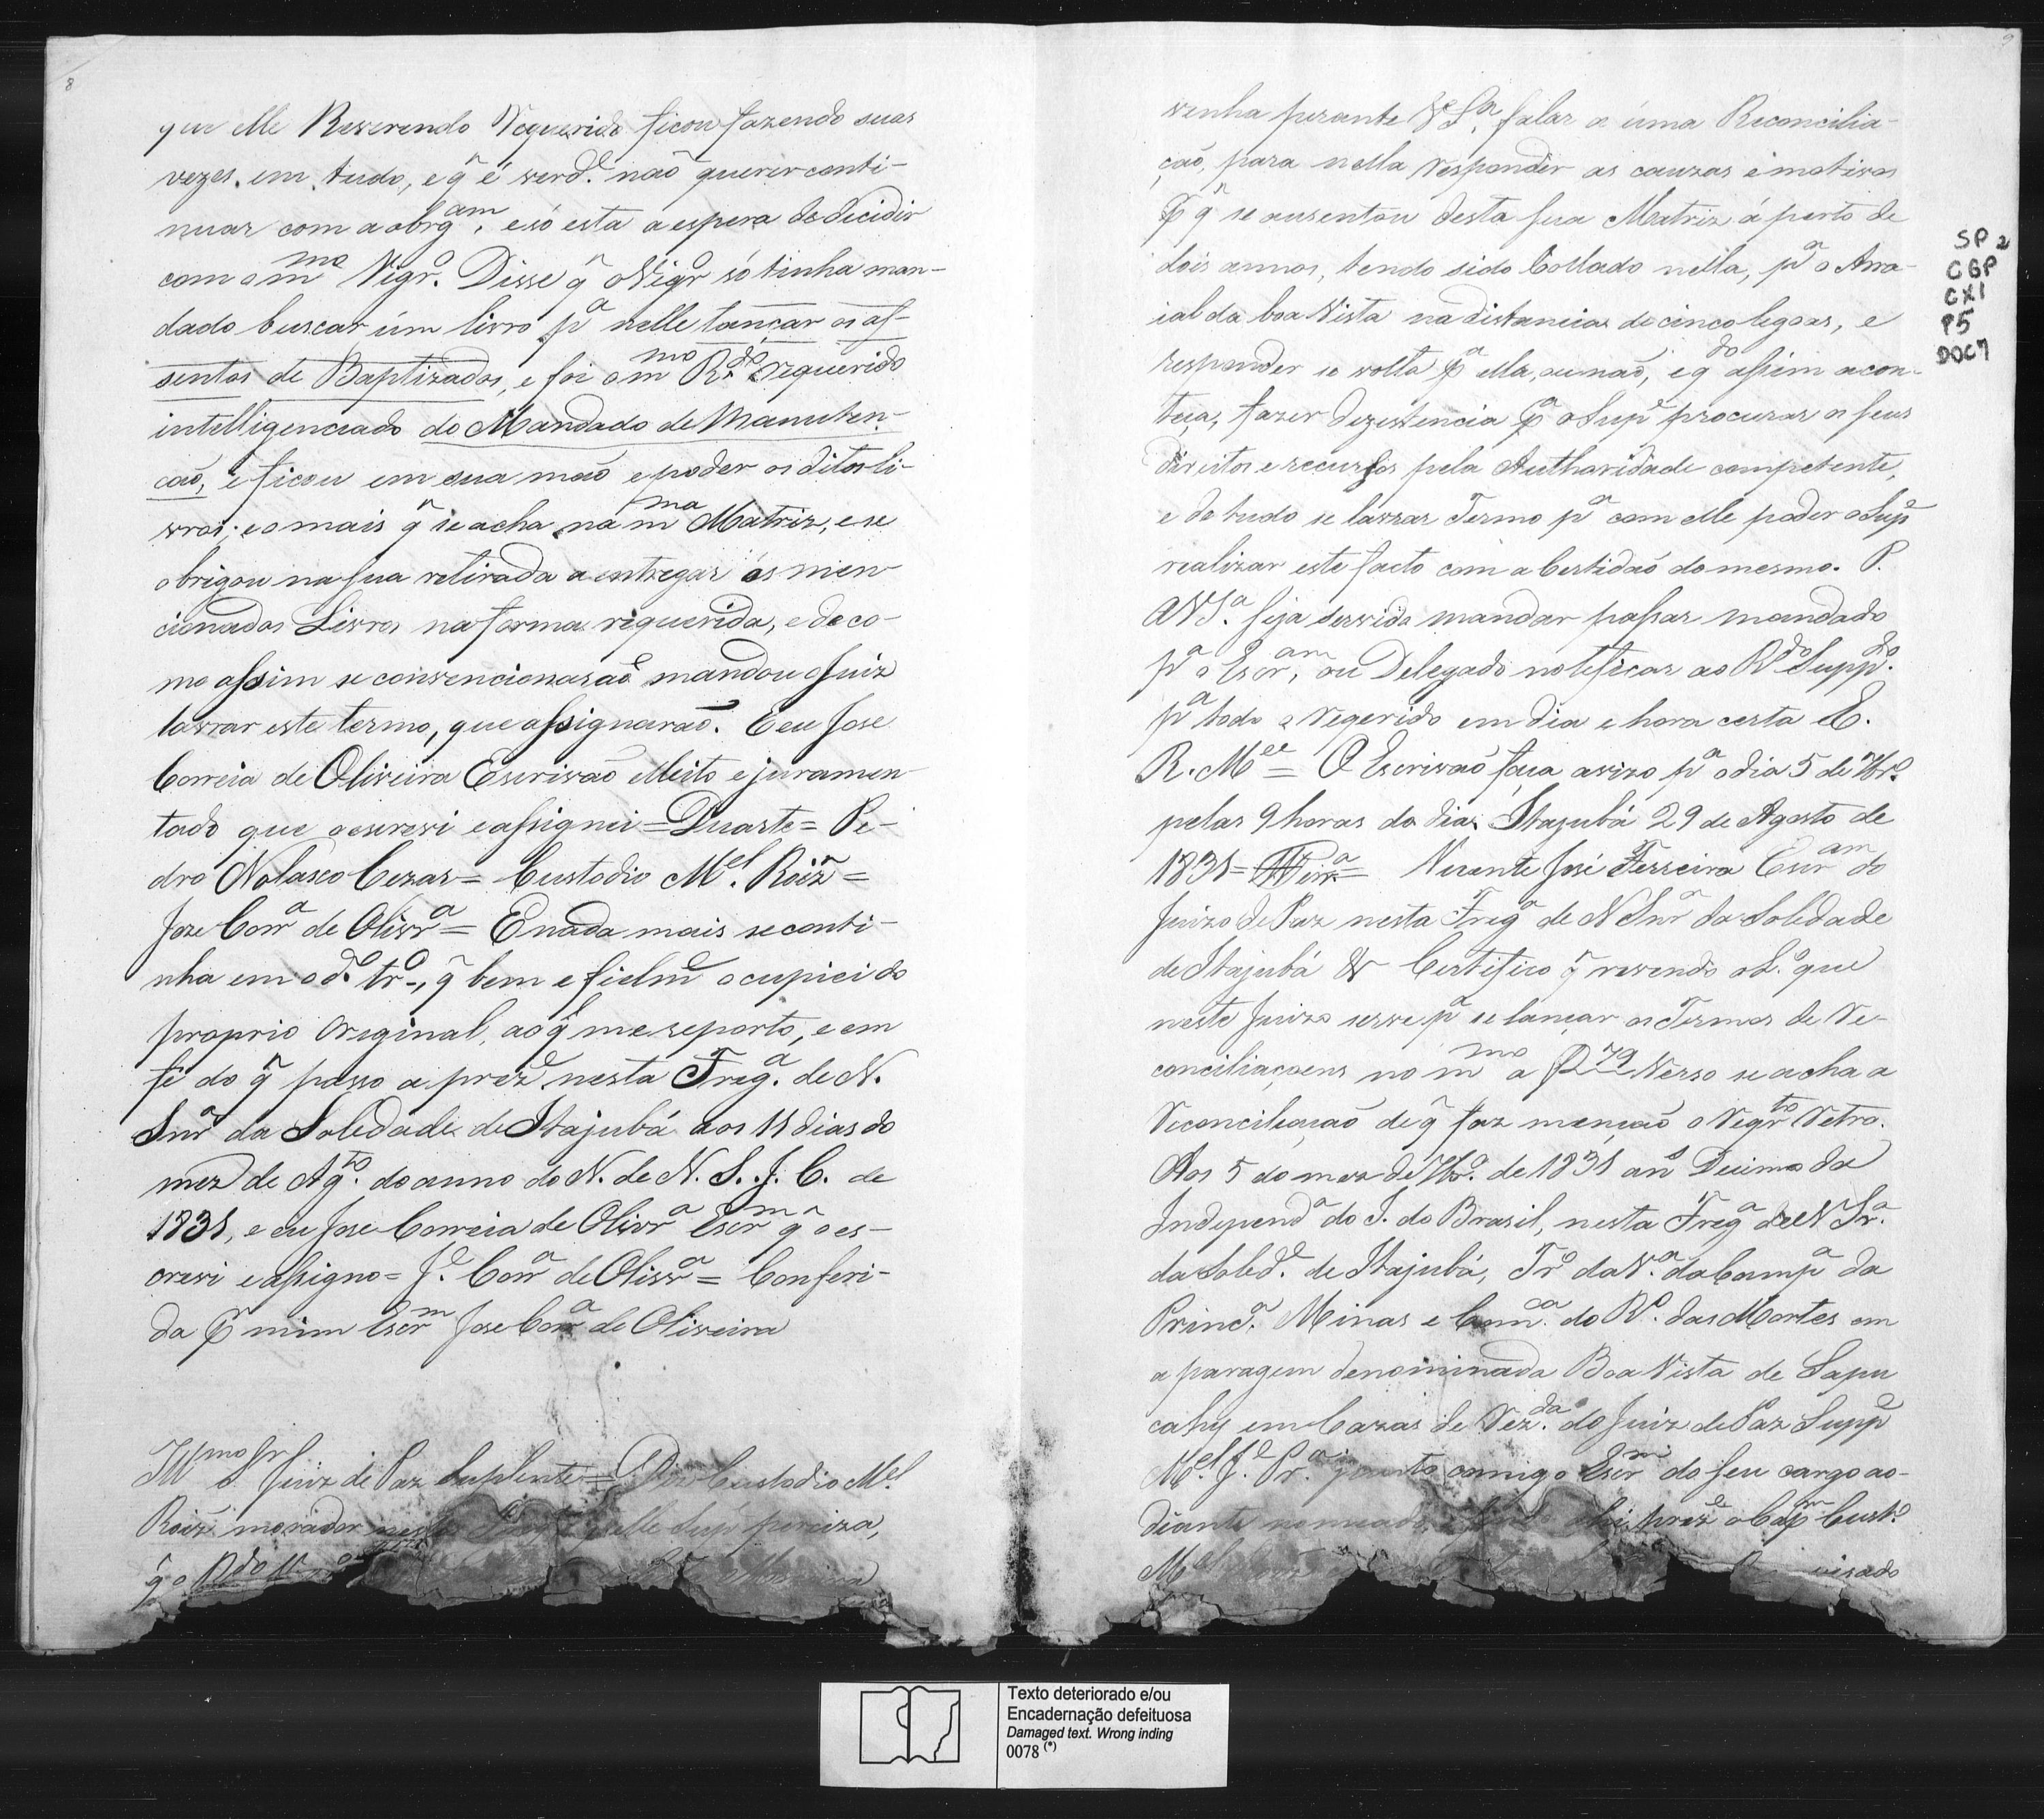 8
que elle Reverendo Requerido ficou fazendo suas
vezes em tudo, e q̃ é verd.e não querer conti-
nuar com a obrg.am, e só esta a espera de decidir
com o m.mo Vigr.o Disse q̃ o Vigr.o só tinha man-
dado buscar úm livro p.a nelle lançar os as-
sentos de Baptizados, e foi o m.mo R.do requerido
intelligenceado do Mandado de Manuten-
cão, e ficou em sua mão e poder os ditos li-
vros; e o mais q̃ se acha na m.ma Matriz, e se
obrigou na sua retirada a entregar os men-
cionados Livros na forma riquerida, e de co-
mo assim se convencionarão mandou o Juiz
lavrar este termo, que assignarão. E eu Jose
Correia de Oliveira Escrivão elleito e juramen-
tado que o escrevi e assignei = Duarte = Pe-
dro Nolasco Cezar = Custodio M.el Roiz =
Joze Corr.a de Olivr.a = E nada mais se conti-
nha em o d.o tr.o, q̃ bem e fielm.e o cupiei do
proprio Original, ao q̃ me reporto, e em
fé do q̃ passo a prez.e nesta Freg.a de N.
Snr.a da Soledade de Itajubá aos 11 dias do
mez de Ag.to do anno do N. de N. S. J. C. de
1831, e eu Jose Correia de Olivr.a Escr.m q̃ o es-
crevi e assigno = J.e Corr.a de Olivr.a = Conferi-
da p̃ mim Escr.m Jose Corr.a de Oliveira
Ill.mo Snr. Juiz de Paz Suplente = Diz Custodio M.el
Roiz morador nesta
q̃ o R.do
9
venha perante V.S.a falar a úma Reconcilia-
ção, para nella responder as cauzas e motivos
p̃ q̃ se ausentou desta sua Matriz á perto de
dois annos, tendo sido Collado nella, p.a o Arra-
ial da boa Vista na distancia de cinco legoas, e
responder se volta p.a ella, ou não, e q.do assim acon-
teça, fazer dezistencia p.a o Sup.e procurar os seus
direitos e recursos pela Authoridade competente,
e de tudo se lavrar Termo p.a com elle poder o Sup.e
realizar este facto com a Certidão do mesmo. P.
A V.S.a seja servido mandar passar mandado
p.a o Escr.am, ou Delegado noteficar ao R.do Supp.do
p.a todo o requerido em dia e hora certa E.
R. M.ce = O Escrivão faça avizo p.a o dia 5 de 7br.o
pelas 9 horas do dia. Itajubá 29 de Agosto de
1831 = Vicente José Ferreira Escr.am do
Juizo de Paz nesta Freg.a de N Snr.a da Soledade
de Itajubá & Certifico q̃ revendo o L.o que
neste Juizo serve p.a se lançar os Termos de Re-
conciliaçoens no m.mo a f 79 Verso se acha a
Reconciliação de q̃ faz menção o Reqr.to Retro.
Aos 5 do mez de 7br.o de 1831 an.o Decimo da
Independ.a do I. do Brasil, nesta Freg.a de N Sr.a
da Soled.e de Itajubá, Tr.o da V.a da Camp.a da
Princ.a Minas e Comr.ca do R.o das Mortes em
a paragem denominada Boa Vista de Sapu
cahy em Cazas de Rez.da do Juiz de Paz Supp.e
M.el J.e Pr.a junto comigo Escr.m do seu cargo ao-
diante nomeado, prez.e o Cap.m Cust.o
M.el
SP 2
CGP
CX1
P5
DOC7
Texto deteriorado e/ou
Encadernação defeituosa
Damaged text. Wrong inding
0078 (*)